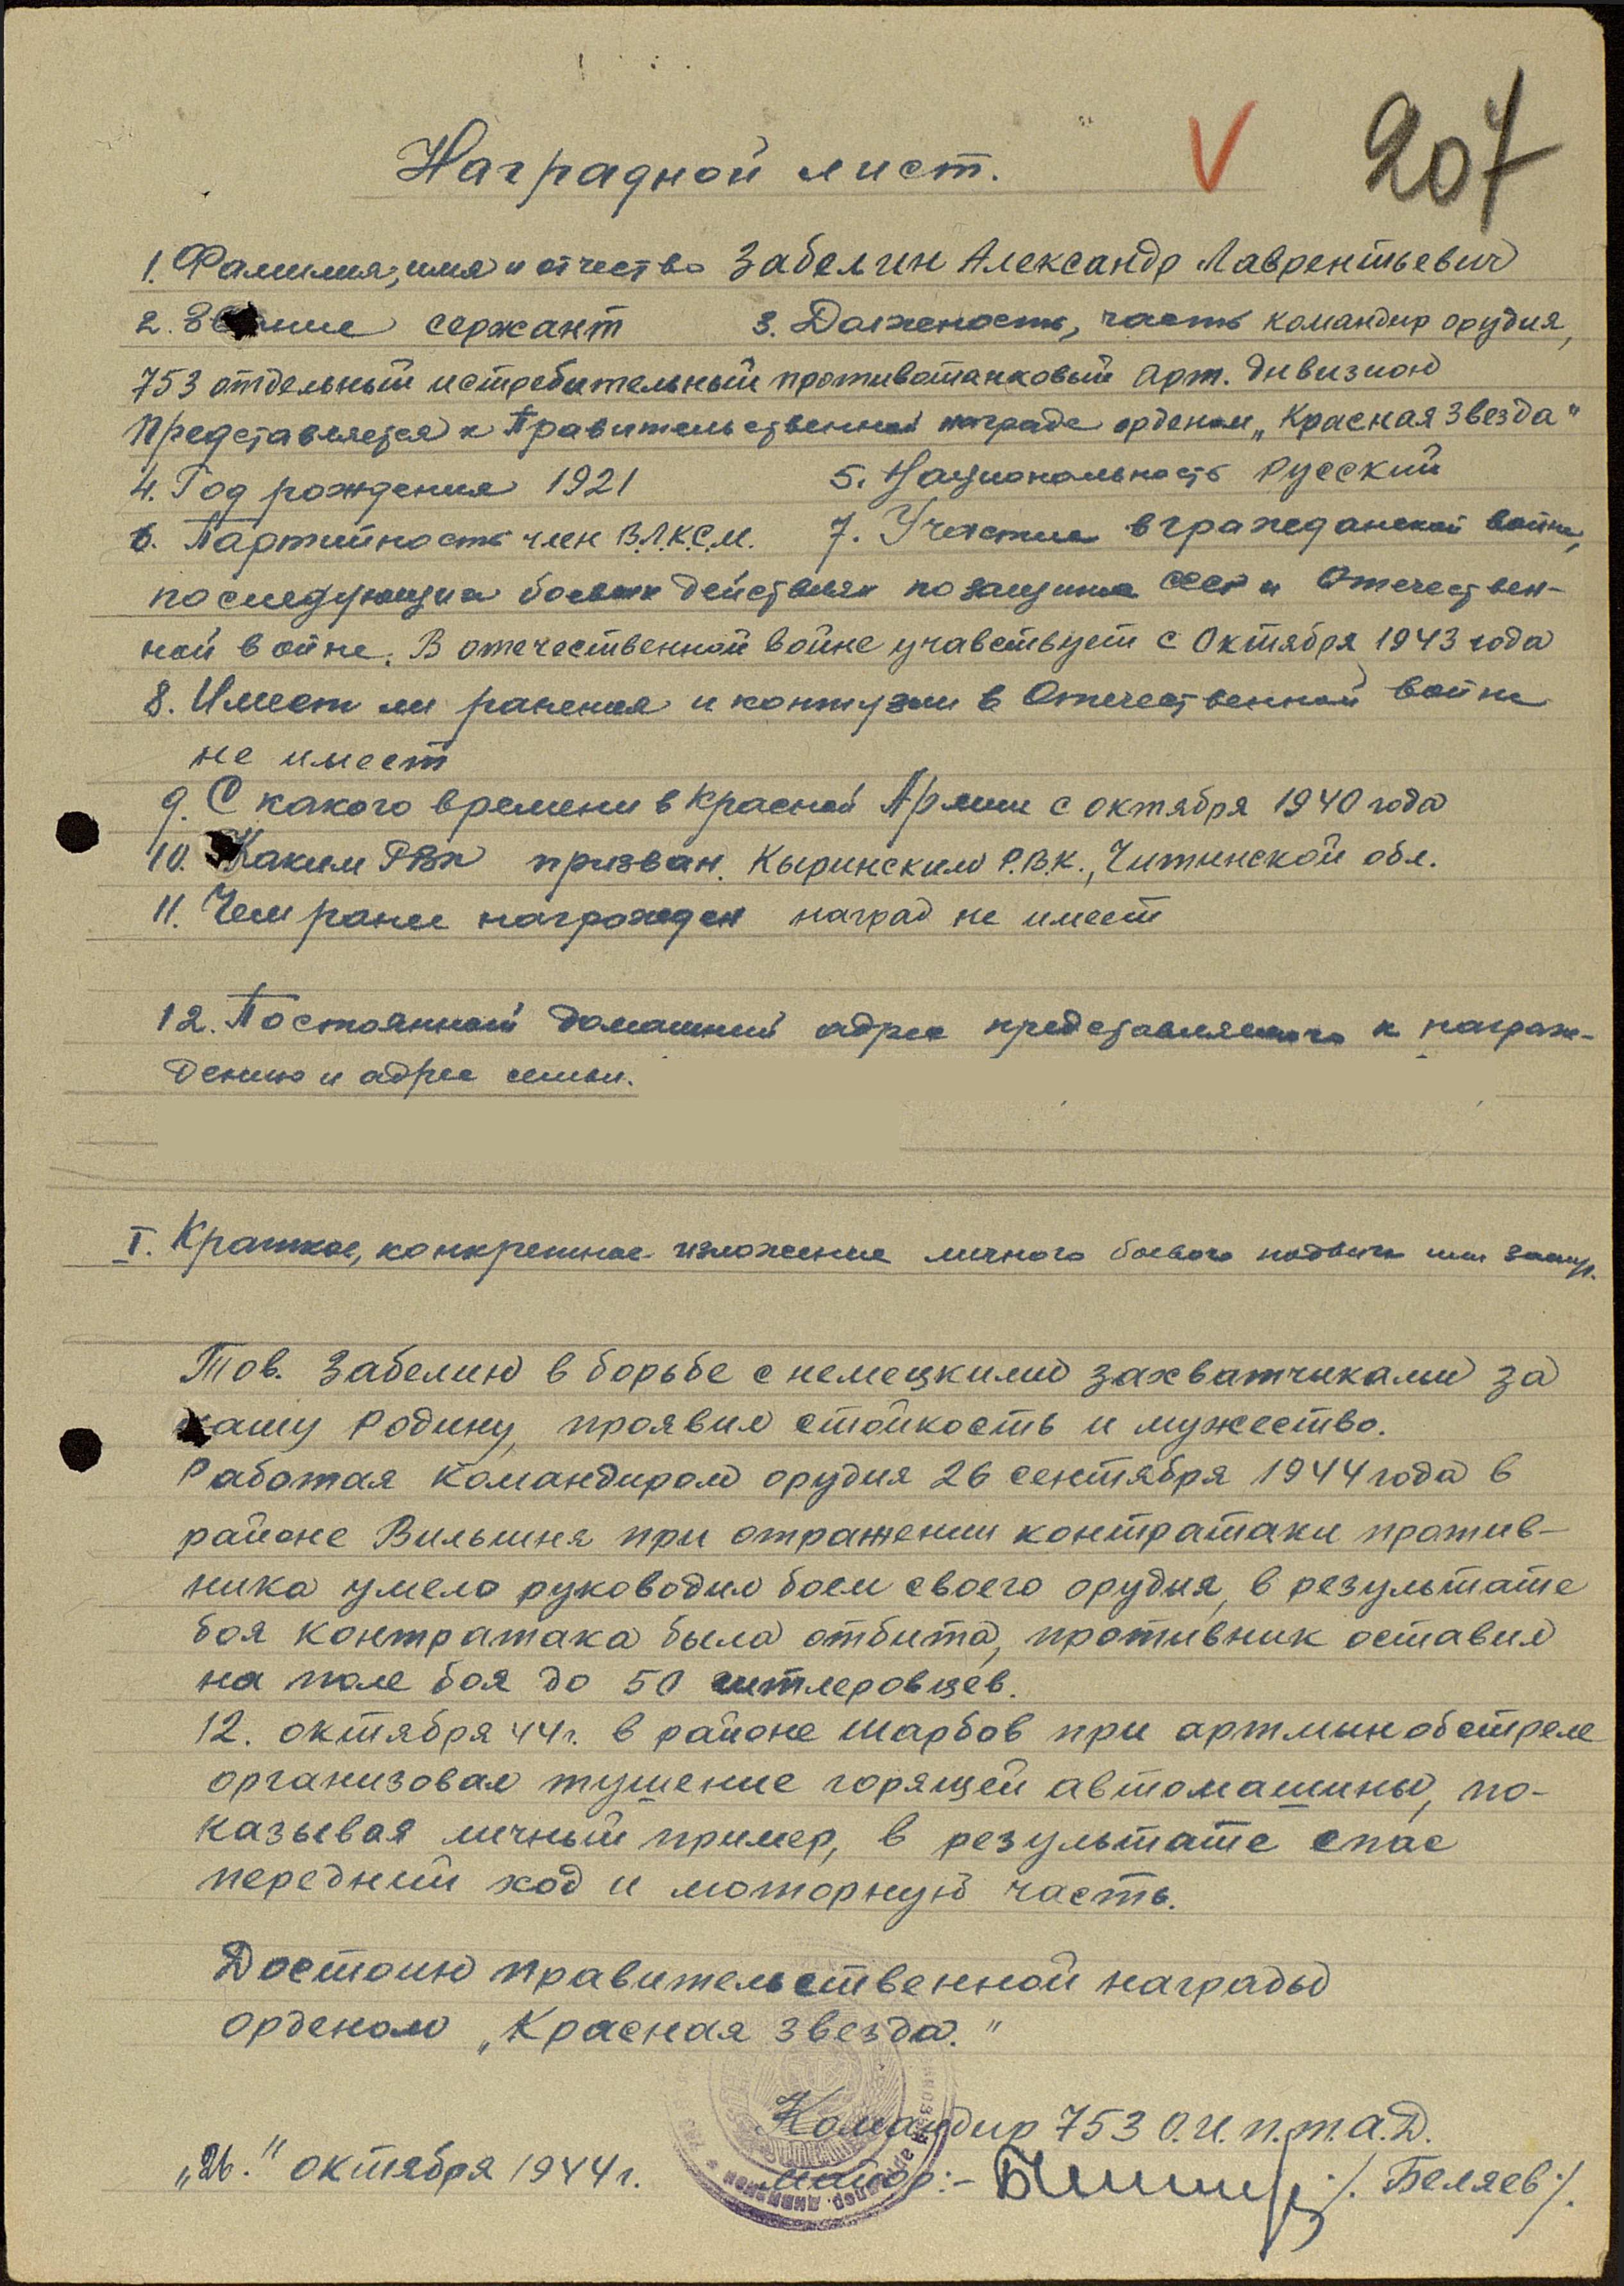 207
Наградной лист.
1. Фамилия, имя и отчество Забелин Александр Лаврентьевич
2. Звание сержант 3. Должность, часть командир орудия,
753 отдельный истребительный противотанковый арт. дивизион
Представляется к Правительственной награде орденом „Красная Звезда"
4. Год рождения 1921 5. Национальность Русский
6. Партийность член В.Л.К.С.М. 7. Участие в гражданской войне,
последующих боевых действиях по защите СССР и Отечествен-
ной войне. В отечественной войне учавствует с Октября 1943 года
8. Имеет ли ранения и контузии в Отечественной войне
не имеет
9. С какого времени в Красной Армии с октября 1940 года
10. Каким РВК призван. Кыринским Р.В.К., Читинской обл.
11. Чем ранее награжден наград не имеет
12. Постоянный домашний адрес представляемого к награж-
дению и адрес семьи.
I. Краткое, конкретное изложение личного боевого подвига или заслуг.
Тов. Забелин в борьбе с немецкими захватчиками за
нашу Родину, проявил стойкость и мужество.
Работая командиром орудия 26 сентября 1944 года в
районе Вильшня при отражении контратаки против-
ника умело руководил боем своего орудия, в результате
боя контратака была отбита, противник оставил
на поле боя до 50 гитлеровцев.
12. октября 44 г. в районе Шарбов при артминобстреле
организовал тушение горящей автомашины, по-
казывая личный пример, в результате спас
передний ход и моторную часть.
Достоин правительственной награды
орденом „Красная звезда."
Командир 753 О.И.П.Т.А.Д.
„26." октября 1944 г. майор:- /. Беляев /.